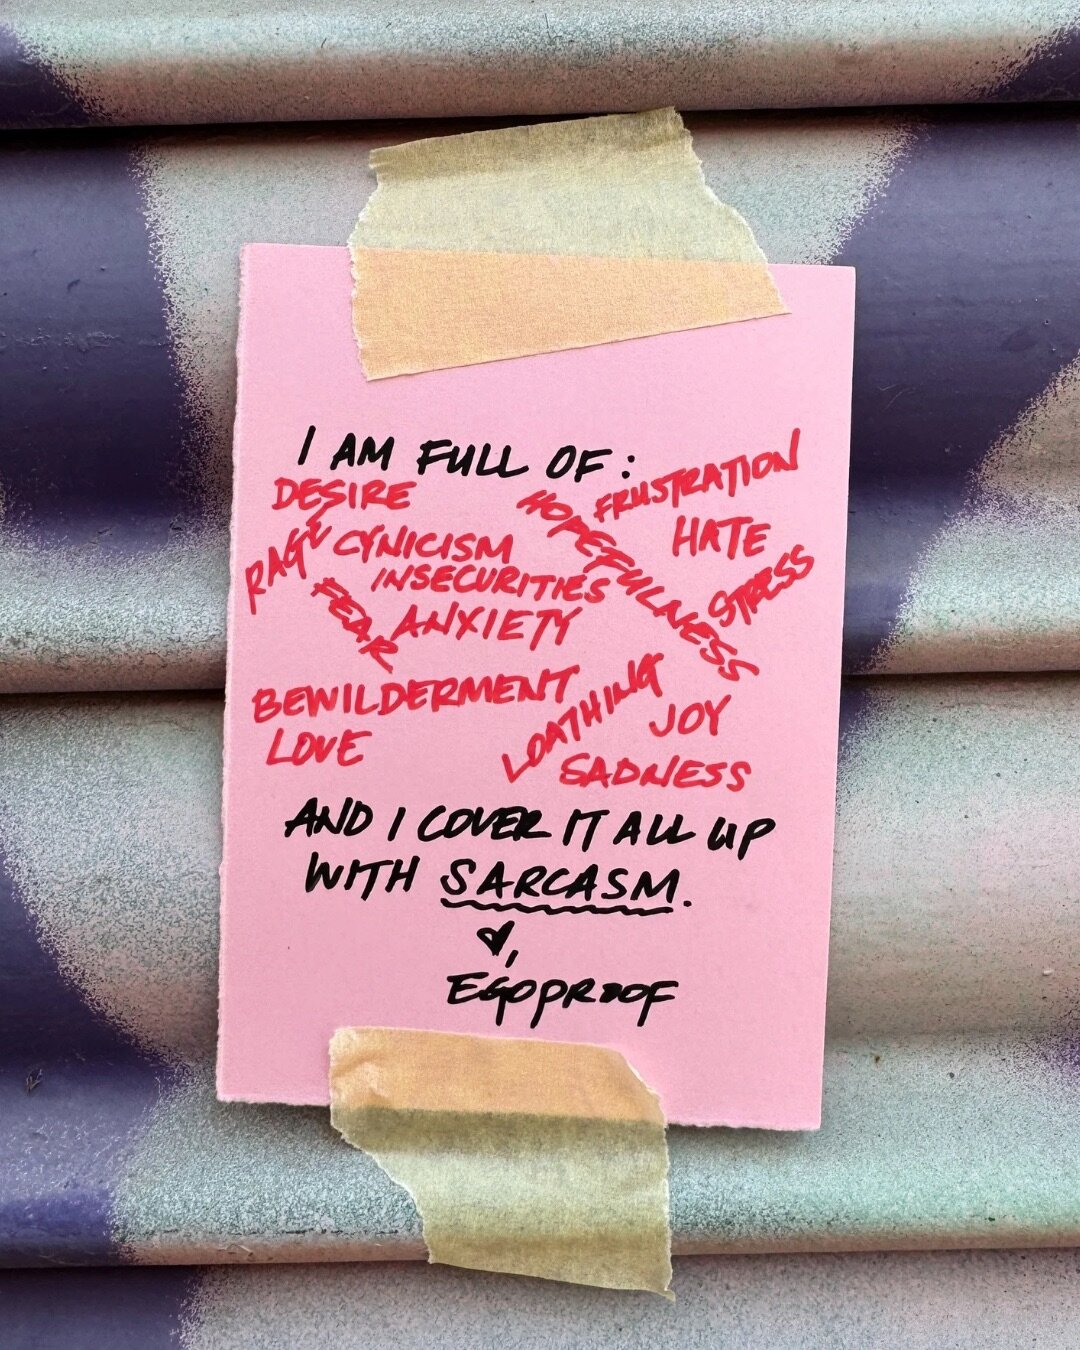 I AM FULL OF:
DESIRE
FRUSTRATION
HOPEFULNESS
HATE
RAGE
CYNICISM
INSECURITIES
STRESS
FEAR
ANXIETY
BEWILDERMENT
LOATHING
JOY
LOVE
SADNESS
AND I COVER IT ALL UP
WITH SARCASM.
♥,
EGOPROOF